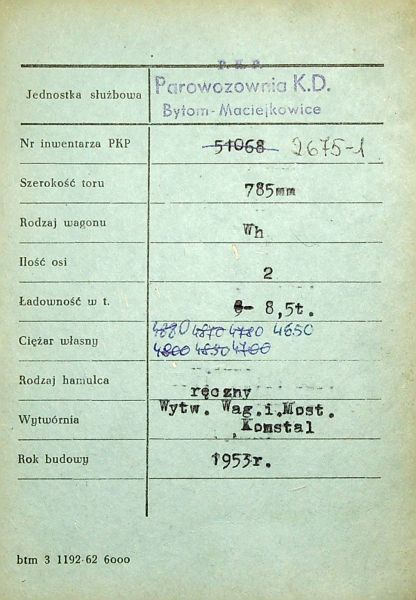 P. K. P.
Jednostka służbowa Parowozownia K.D.
Bytom-Maciejkowice
Nr inwentarza PKP 51068 2675-1
Szerokość toru 785mm
Rodzaj wagonu Wh
Ilość osi 2
Ładowność w t. 8,5t.
4880 4870 4780 4650
Ciężar własny 4800 4850 4700
Rodzaj hamulca ręczny
Wytw. Wag.i.Most.
Wytwórnia Komstal
Rok budowy 1953r.
btm 3 1192-62 6000